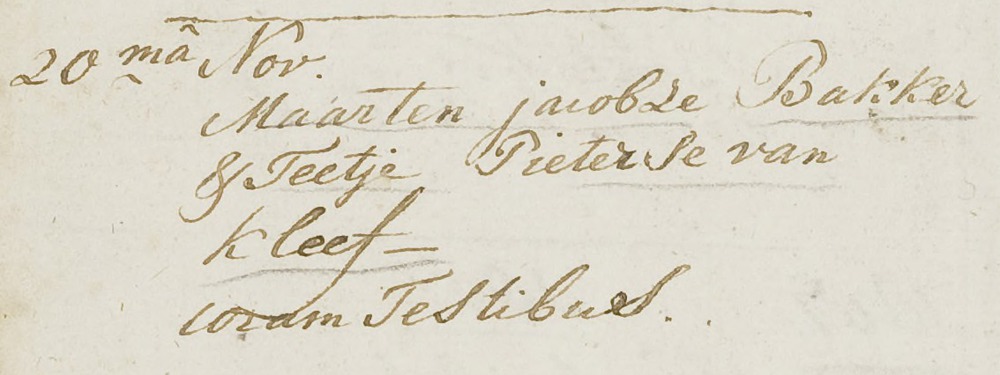 20 mâ Nov.
Maarten jacobze Bakker
& Teetje Pieterse van
kleef —
coram Testibus.